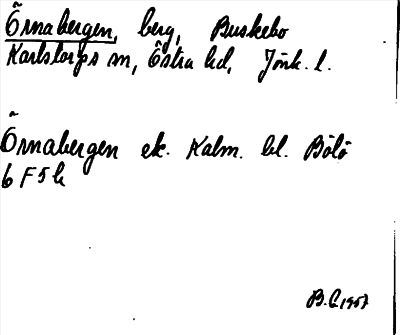 Örnabergen, berg, Buskebo
Karlstorps sn, Östra hd, Jönk. l.
Örnabergen ek. Kalm. bl. Bölö
6 F 5 h
B.E. 1957